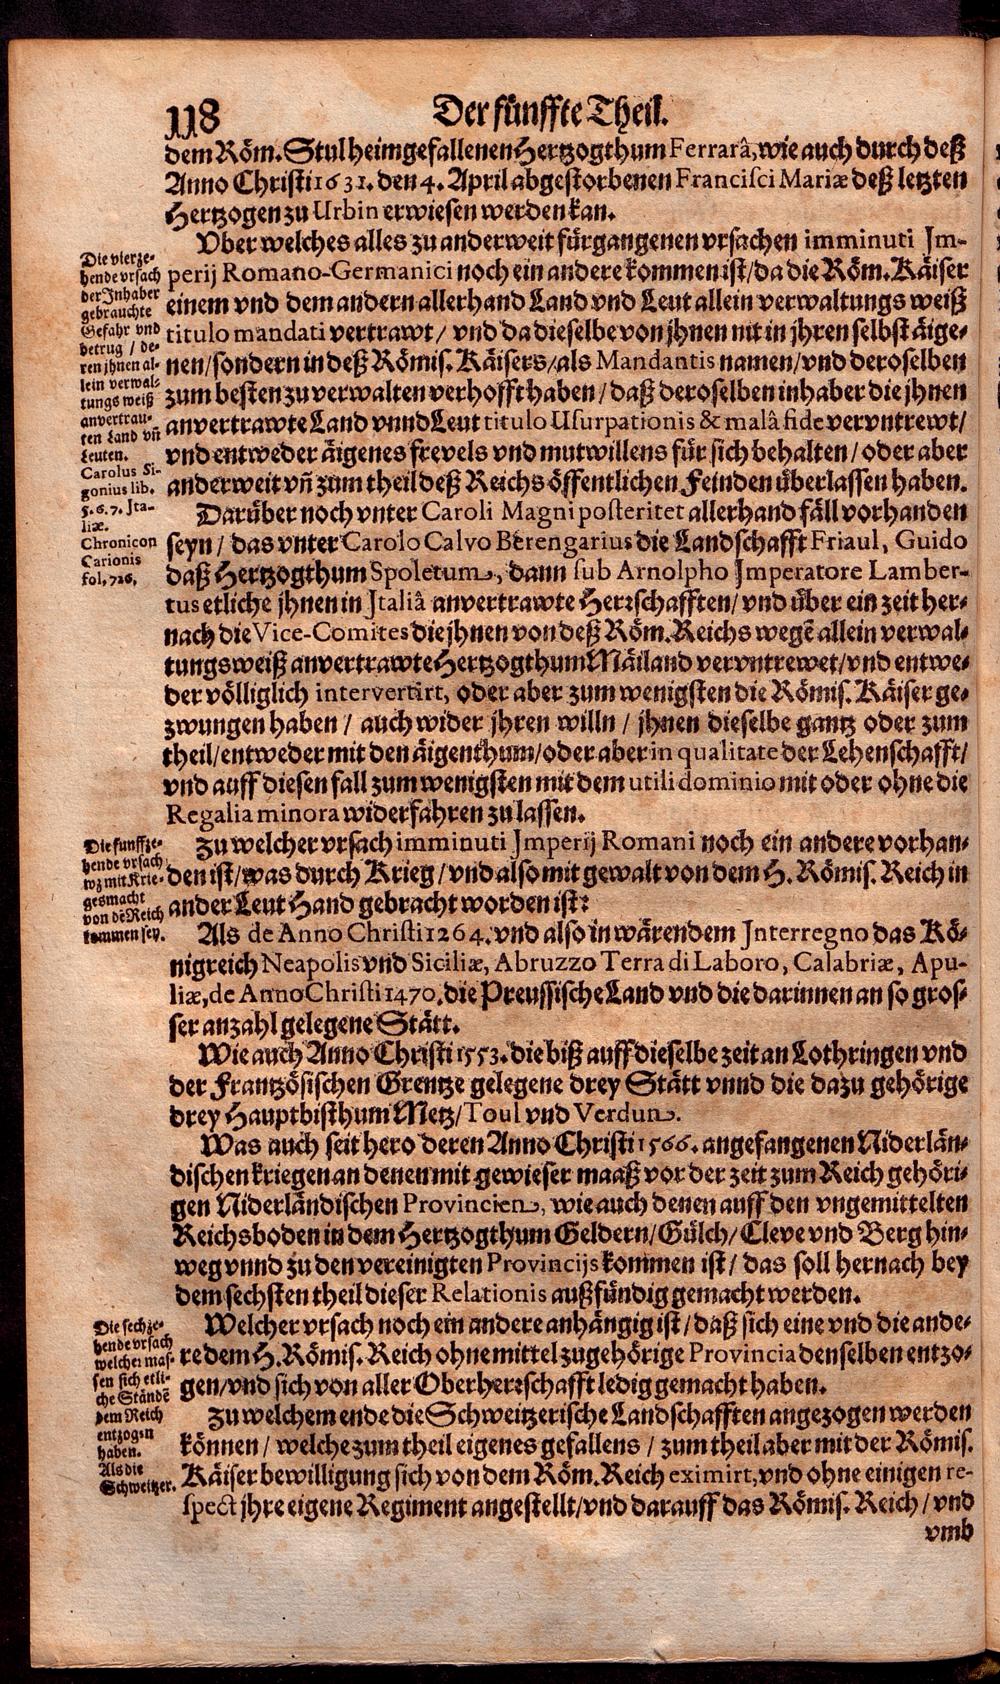 118
Der fünffte Theil.
dem Röm. Stul heimgefallenen Hertzogthum Ferrarâ, wie auch durch deß
Anno Christi 1631. den 4. April abgestorbenen Francisci Mariæ deß letzten
Hertzogen zu Urbin erwiesen werden kan.
Vber welches alles zu anderweit fürgangenen vrsachen imminuti Im-
perij Romano-Germanici noch ein andere kommen ist/ da die Röm. Käiser
einem vnd dem andern allerhand Land vnd Leut allein verwaltungs weiß
titulo mandati vertrawt / vnd da dieselbe von jhnen nit in jhren selbst äige-
nen/sondern in deß Römis. Käisers/als Mandantis namen/vnd deroselben
zum besten zu verwalten verhofft haben / daß deroselben inhaber die jhnen
anvertrawte Land vnnd Leut titulo Usurpationis & malâ fide vervntrewt/
vnd entweder äigenes frevels vnd mutwillens für sich behalten / oder aber
anderweit vñ zum theil deß Reichs öffentlichen Feinden überlassen haben.
Die vierze-
hende vrsach
der Inhaber
gebrauchte
Gefahr vnd
betrug / de-
ren jhnen al-
lein verwal-
tungs weiß
anvertrau-
ten Land vñ
Leuten.
Carolus Si-
gonius lib.
5. 6. 7. Ita-
liæ.
Chronicon
Carionis
fol, 726,
Darüber noch vnter Caroli Magni posteritet allerhand fäll vorhanden
seyn / das vnter Carolo Calvo Berengarius die Landschafft Friaul, Guido
daß Hertzogthum Spoletum, dann sub Arnolpho Imperatore Lamber-
tus etliche jhnen in Italiâ anvertrawte Herꝛschafften/ vnd über ein zeit her-
nach die Vice-Comites die jhnen von deß Röm. Reichs wegẽ allein verwal-
tungs weiß anvertrawte Hertzogthum Mäiland vervntrewet/vnd entwe-
der völliglich intervertirt, oder aber zum wenigsten die Römis. Käiser ge-
zwungen haben / auch wider jhren willn / jhnen dieselbe gantz oder zum
theil/entweder mit den äigenthum/oder aber in qualitate der Lehenschafft/
vnd auff diesen fall zum wenigsten mit dem utili dominio mit oder ohne die
Regalia minora widerfahren zu lassen.
Zu welcher vrsach imminuti Imperij Romani noch ein andere vorhan-
den ist/was durch Krieg / vnd also mit gewalt von dem H. Römis. Reich in
ander Leut Hand gebracht worden ist:
Die funffze-
hende vrsach,
wz mit Krie-
gesmacht
von dẽ Reich
kommen sey.
Als de Anno Christi 1264. vnd also in wärendem Interregno das Kö-
nigreich Neapolis vnd Siciliæ, Abruzzo Terra di Laboro, Calabriæ, Apu-
liæ, de Anno Christi 1470. die Preussische Land vnd die darinnen an so gros-
ser anzahl gelegene Stätt.
Wie auch Anno Christi 1553. die biß auff dieselbe zeit an Lothringen vnd
der Frantzösischen Grentze gelegene drey Stätt vnnd die dazu gehörige
drey Hauptbisthum Metz/Toul vnd Verdun.
Was auch seit hero deren Anno Christi 1566. angefangenen Niderlän-
dischen kriegen an denen mit gewieser maaß vor der zeit zum Reich gehöri-
gen Niderländischen Provincien, wie auch denen auff den vngemittelten
Reichsboden in dem Hertzogthum Geldern/Gülch/ Cleve vnd Berg hin-
weg vnnd zu den vereinigten Provincijs kommen ist / das soll hernach bey
dem sechsten theil dieser Relationis außfündig gemacht werden.
Welcher vrsach noch ein andere anhängig ist / daß sich eine vnd die ande-
re dem H. Römis. Reich ohne mittel zugehörige Provincia denselben entzo-
gen/vnd sich von aller Oberherꝛschafft ledig gemacht haben.
Die sechze-
hende vrsach
welcher mas-
sen sich etli-
che Ständẽ
dem Reich
entzogen
haben.
Als die
Schweitzer.
Zu welchem ende die Schweitzerische Landschafften angezogen werden
können / welche zum theil eigenes gefallens / zum theil aber mit der Römis.
Käiser bewilligung sich von dem Röm. Reich eximirt, vnd ohne einigen re-
spect jhre eigene Regiment angestellt/vnd darauff das Römis. Reich / vnd
vmb